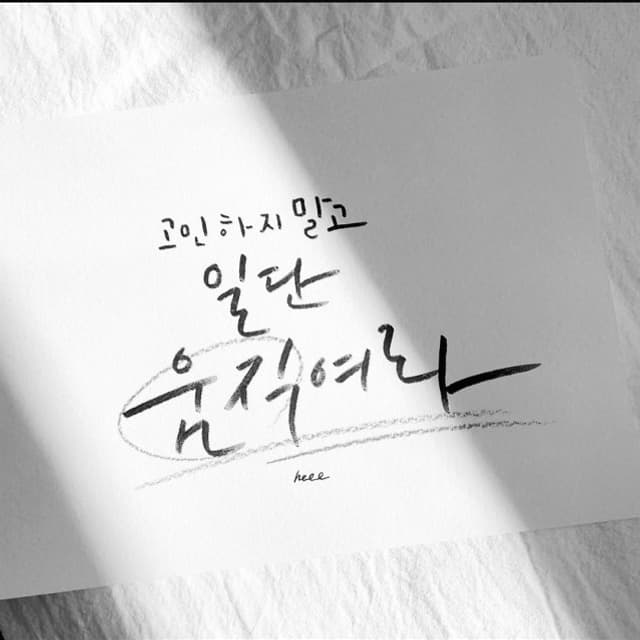 고민하지 말고
일단
움직여라
heee